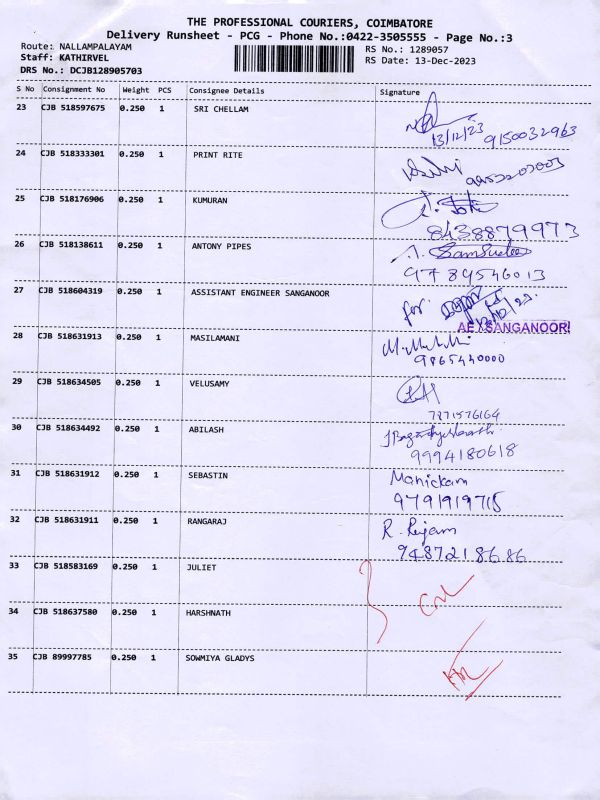 THE PROFESSIONAL COURIERS, COIMBATORE
Delivery Runsheet - PCG - Phone No.:0422-3505555 - Page No.:3
Route: NALLAMPALAYAM RS No.: 1289057
Staff: KATHIRVEL RS Date: 13-Dec-2023
DRS No.: DCJB128905703
S No Consignment No Weight PCS Consignee Details Signature
23 CJB 518597675 0.250 1 SRI CHELLAM
13/12/23 9150032963
24 CJB 518333301 0.250 1 PRINT RITE
25 CJB 518176906 0.250 1 KUMURAN
8438879973
26 CJB 518138611 0.250 1 ANTONY PIPES
9789546013
27 CJB 518604319 0.250 1 ASSISTANT ENGINEER SANGANOOR
for
AE / SANGANOOR
28 CJB 518631913 0.250 1 MASILAMANI
9865440000
29 CJB 518634505 0.250 1 VELUSAMY
7871576164
30 CJB 518634492 0.250 1 ABILASH
9994180618
31 CJB 518631912 0.250 1 SEBASTIN Manickam
9791919715
32 CJB 518631911 0.250 1 RANGARAJ R. Rajam
9487218686
33 CJB 518583169 0.250 1 JULIET
34 CJB 518637580 0.250 1 HARSHNATH
35 CJB 89997785 0.250 1 SOWMIYA GLADYS